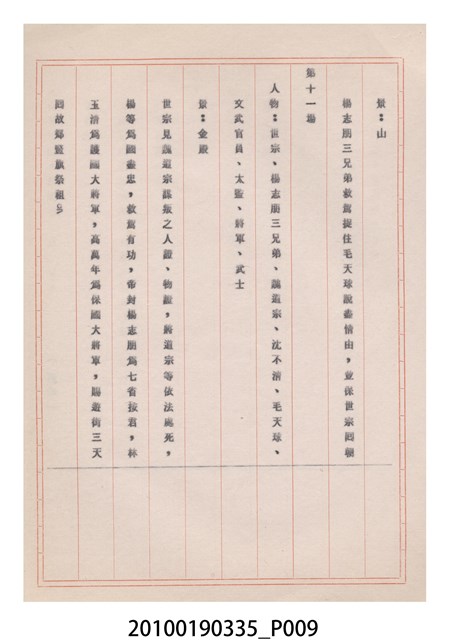 景：山
楊志朋三兄弟救駕捉住毛天球說盡情由，並保世宗回朝
第十一場
人物：世宗、楊志朋三兄弟、魏道宗、沈不清、毛天球、
文武官員、太監、將軍、武士
景：金殿
世宗見魏道宗謀叛之人證、物證，將道宗等依法處死，
楊等為國盡忠，救駕有功，帝封楊志朋為七省按君，林
玉清為護國大將軍，高萬年為保國大將軍，賜遊街三天
回故鄉豎旗祭祖
20100190335_P009